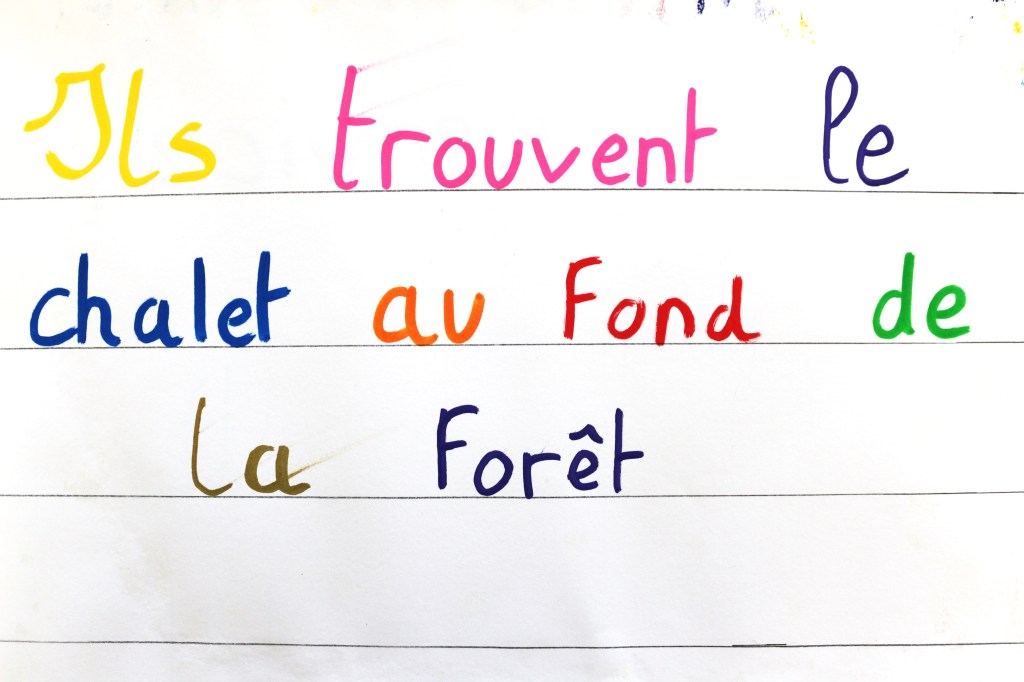 Ils trouvent le
chalet au Fond de
la Forêt